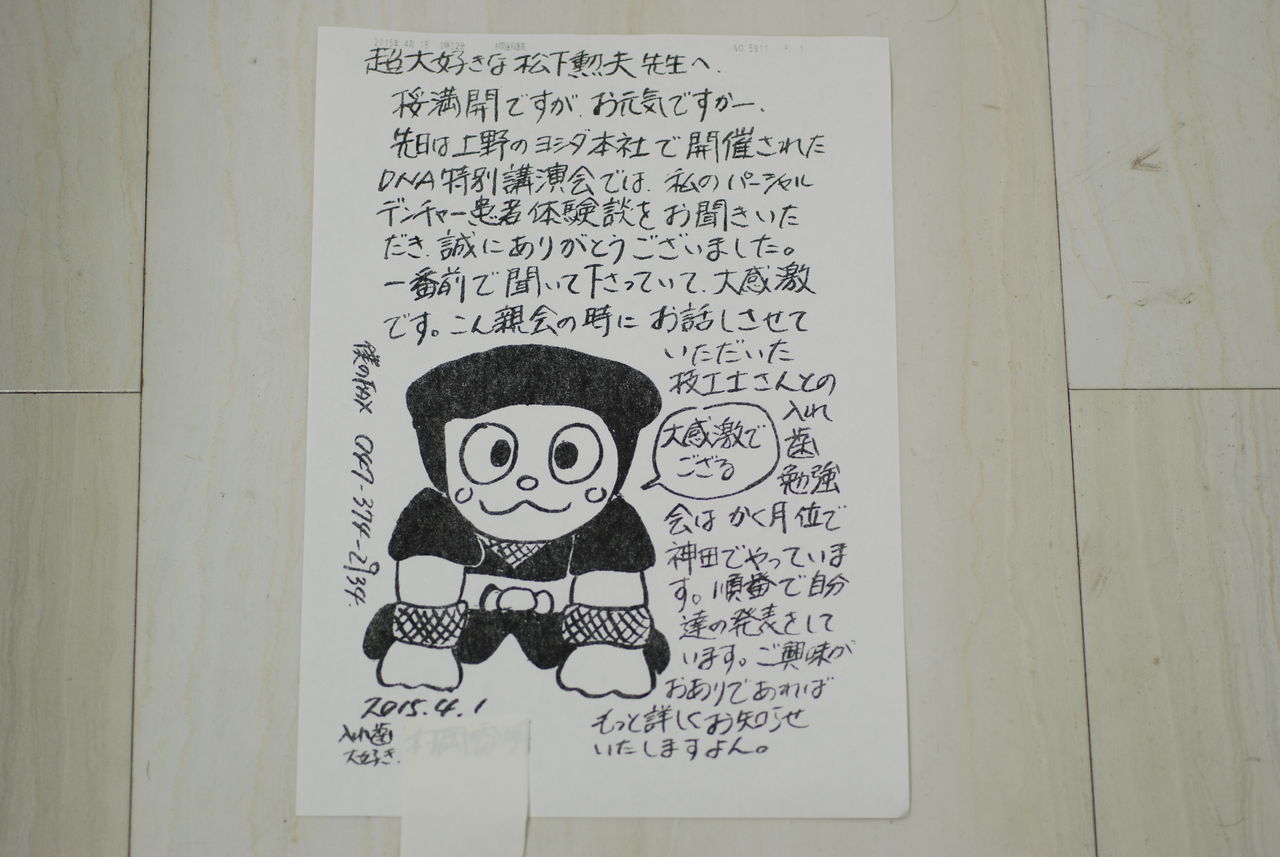 2015年 4月 1日
NO.5911 P. 1
超大好きな松下勲夫先生へ.
桜満開ですが、お元気ですかー.
先日は上野のヨシダ本社で開催された
DNA特別講演会では、私のパーシャル
デンチャー患者体験談をお聞きいた
だき、誠にありがとうございました。
一番前で聞いて下さっていて、大感激
です。こん親会の時にお話しさせて
いただいた
技工士さんとの
入れ
歯
勉強
会はかく月位で
神田でやっていま
す。順番で自分
達の発表をして
います。ご興味が
おありであれば
もっと詳しくお知らせ
いたしますよん。
大感激で
ござる
僕のFAX 047-374-2934.
2015.4.1
入れ歯
大好き.